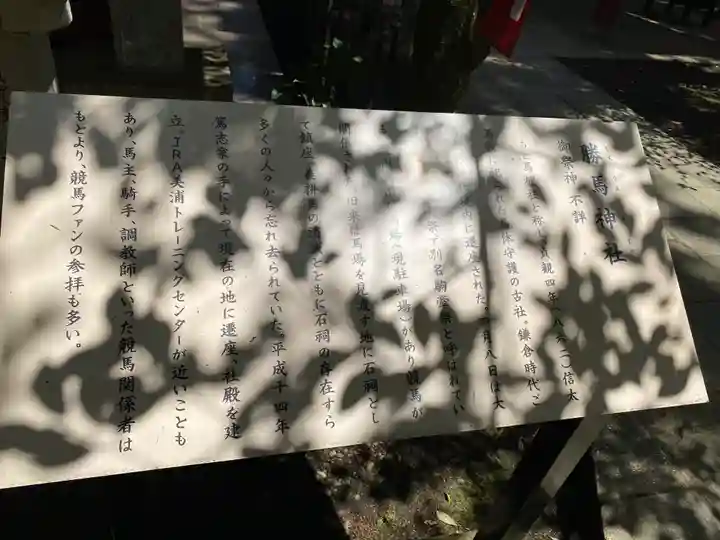 勝馬神社
御祭神 不詳
馬 と称し、貞観四年(八六二)信太
保守護の古社。鎌倉時代、こ
内に遷座された。 月八日は大
祭で別名駒 祭と呼ばれてい
(現駐車場)があり競馬が
開催され、旧来は馬場を見 す地に石祠とし
て鎮座。 耕馬の とともに石祠の存在すら
多くの人々から忘れ去られていた。平成十四年
篤志家の手によって現在の地に遷座、社殿を建
立。JRA美浦トレーニングセンターが近いことも
あり、馬主、騎手、調教師といった競馬関係者は
もとより、競馬ファンの参拝も多い。